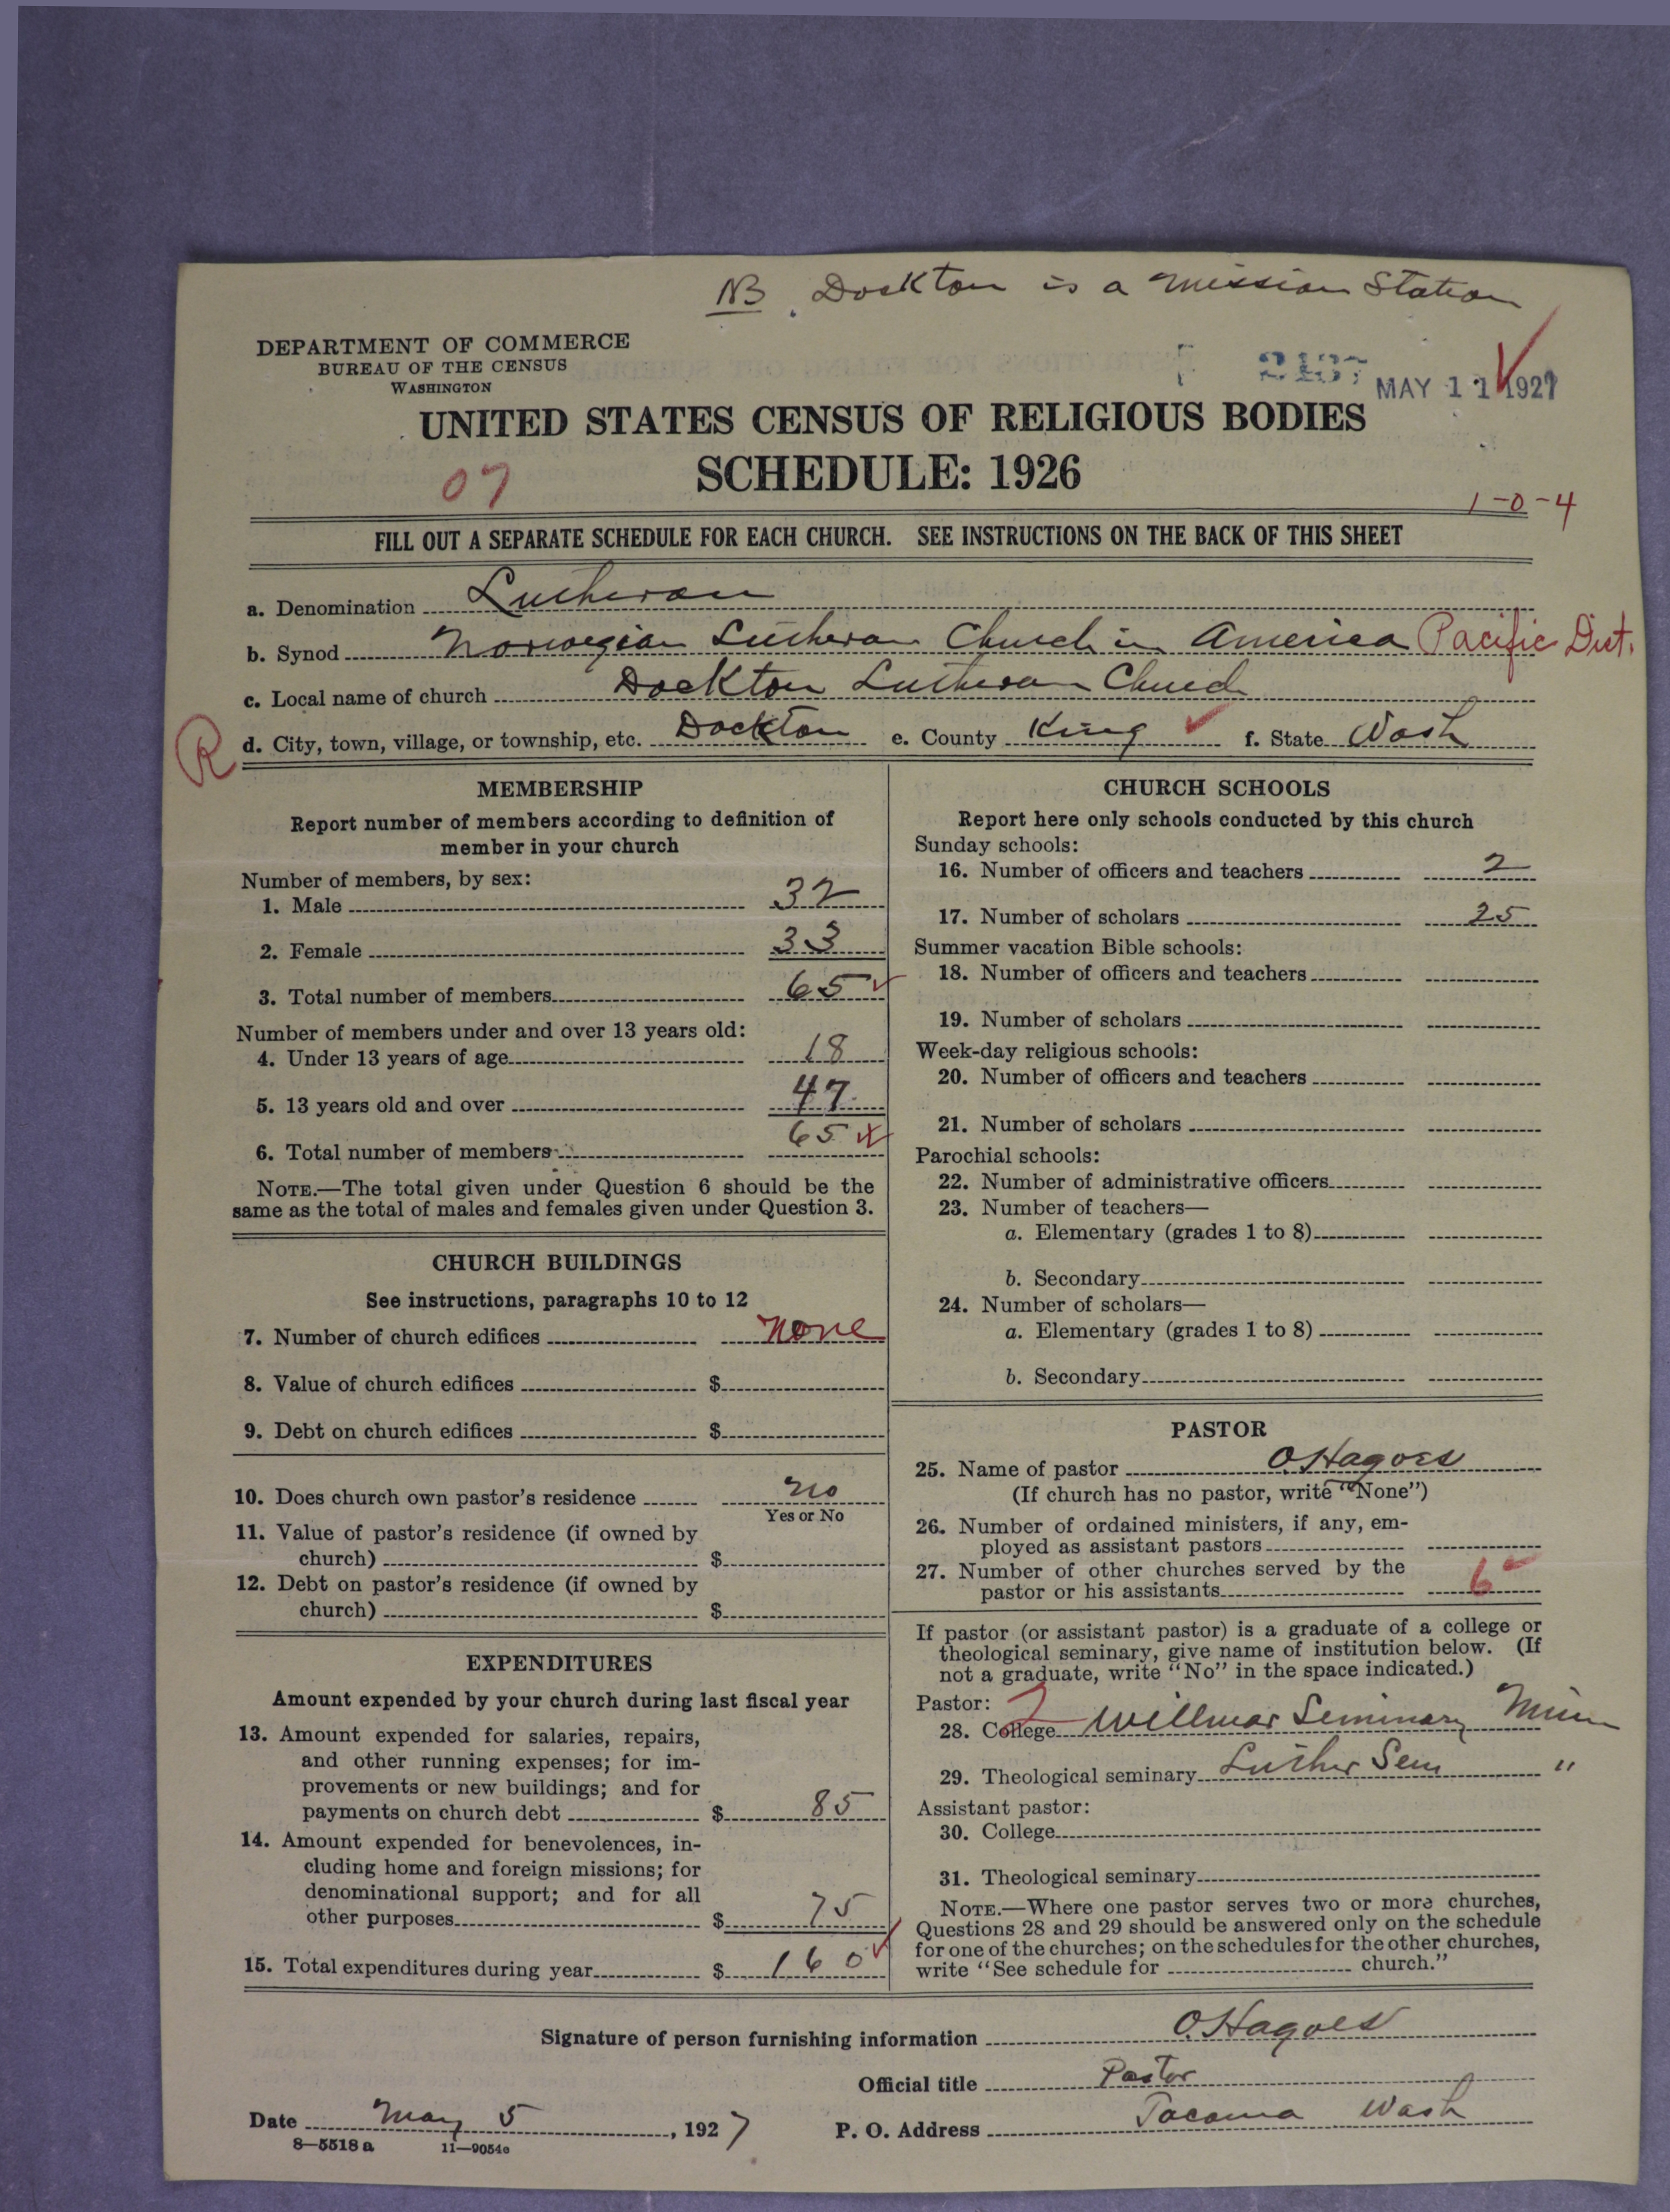 NB. Dockton is a Mission Station
DEPARTMENT OF COMMERCE
BUREAU OF THE CENSUS
WASHINGTON
MAY 11 1927
UNITED STATES CENSUS OF RELIGIOUS BODIES
07
SCHEDULE: 1926
1-0-4
FILL OUT A SEPARATE SCHEDULE FOR EACH CHURCH. SEE INSTRUCTIONS ON THE BACK OF THIS SHEET
a. Denomination Lutheran
b. Synod Norwegian Lutheran Church in America Pacific Dist.
c. Local name of church Dockton Lutheran Church
R d. City, town, village, or township, etc. Dockton e. County King f. State Wash
MEMBERSHIP
Report number of members according to definition of
member in your church
Number of members, by sex:
1. Male 32
2. Female 33
3. Total number of members 65
Number of members under and over 13 years old:
4. Under 13 years of age 18
5. 13 years old and over 47
6. Total number of members 65
NOTE.—The total given under Question 6 should be the
same as the total of males and females given under Question 3.
CHURCH BUILDINGS
See instructions, paragraphs 10 to 12
7. Number of church edifices none
8. Value of church edifices $
9. Debt on church edifices $
10. Does church own pastor's residence no
Yes or No
11. Value of pastor's residence (if owned by
church) $
12. Debt on pastor's residence (if owned by
church) $
EXPENDITURES
Amount expended by your church during last fiscal year
13. Amount expended for salaries, repairs,
and other running expenses; for im-
provements or new buildings; and for
payments on church debt $ 85
14. Amount expended for benevolences, in-
cluding home and foreign missions; for
denominational support; and for all
other purposes $ 75
15. Total expenditures during year $ 160
CHURCH SCHOOLS
Report here only schools conducted by this church
Sunday schools:
16. Number of officers and teachers 2
17. Number of scholars 25
Summer vacation Bible schools:
18. Number of officers and teachers
19. Number of scholars
Week-day religious schools:
20. Number of officers and teachers
21. Number of scholars
Parochial schools:
22. Number of administrative officers
23. Number of teachers—
a. Elementary (grades 1 to 8)
b. Secondary
24. Number of scholars—
a. Elementary (grades 1 to 8)
b. Secondary
PASTOR
25. Name of pastor O. Hagoes
(If church has no pastor, write "None")
26. Number of ordained ministers, if any, em-
ployed as assistant pastors
27. Number of other churches served by the
pastor or his assistants 6
If pastor (or assistant pastor) is a graduate of a college or
theological seminary, give name of institution below. (If
not a graduate, write "No" in the space indicated.)
Pastor:
28. College Willmar Seminary Minn
29. Theological seminary Luther Sem "
Assistant pastor:
30. College
31. Theological seminary
NOTE.—Where one pastor serves two or more churches,
Questions 28 and 29 should be answered only on the schedule
for one of the churches; on the schedules for the other churches,
write "See schedule for church."
Signature of person furnishing information O. Hagoes
Official title Pastor
Date May 5, 1927 P. O. Address Tacoma Wash
8—5518a 11—9054c